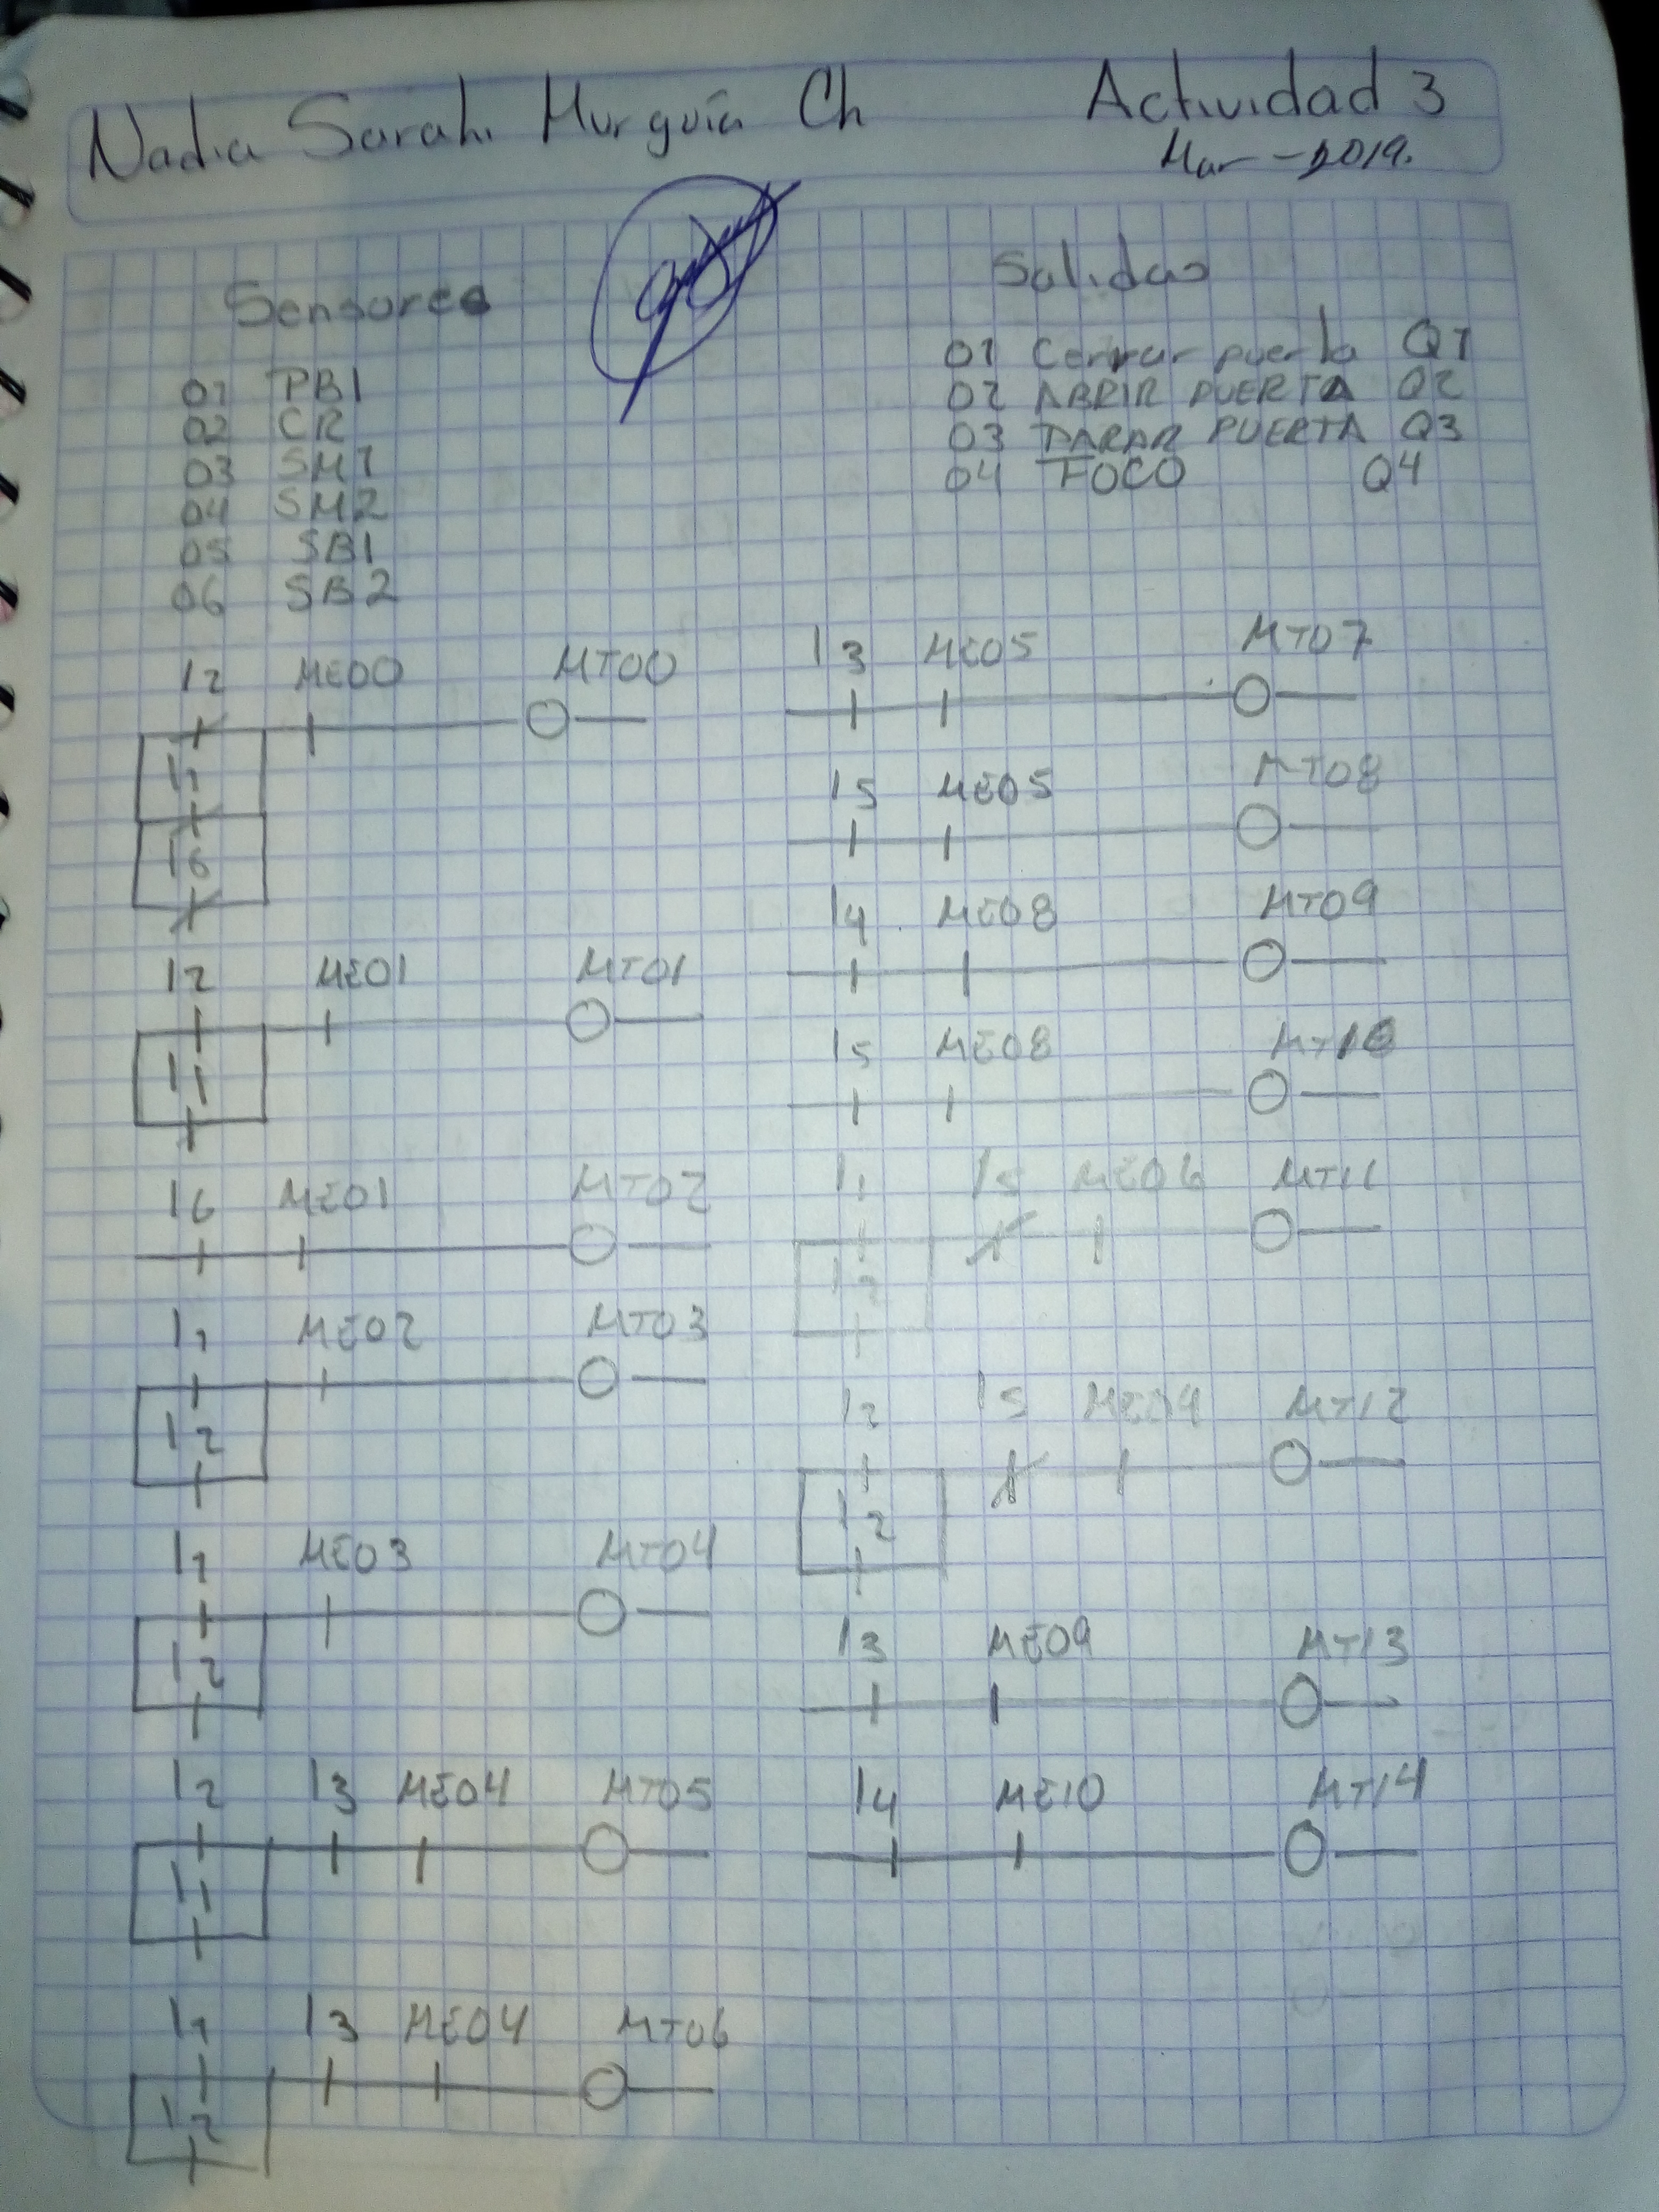 Nadia Sarahi Murguía Ch
Actividad 3
Mar-2019.
Sensores
01 PB1
02 CR
03 SM1
04 SM2
05 SB1
06 SB2
Salidas
01 Cerrar puerta Q1
02 ABRIR PUERTA Q2
03 PARAR PUERTA Q3
04 FOCO Q4
I2 ME00 MT00
I1
I6
I2 ME01 MT01
I1
I6 ME01 MT02
I1 ME02 MT03
I2
I1 ME03 MT04
I2
I2 I3 ME04 MT05
I1
I1 I3 ME04 MT06
I2
I3 ME05 MT07
I5 ME05 MT08
I4 ME08 MT09
I5 ME08 MT10
I1 I5 ME06 MT11
I2
I2 I5 ME04 MT12
I2
I3 ME09 MT13
I4 ME10 MT14